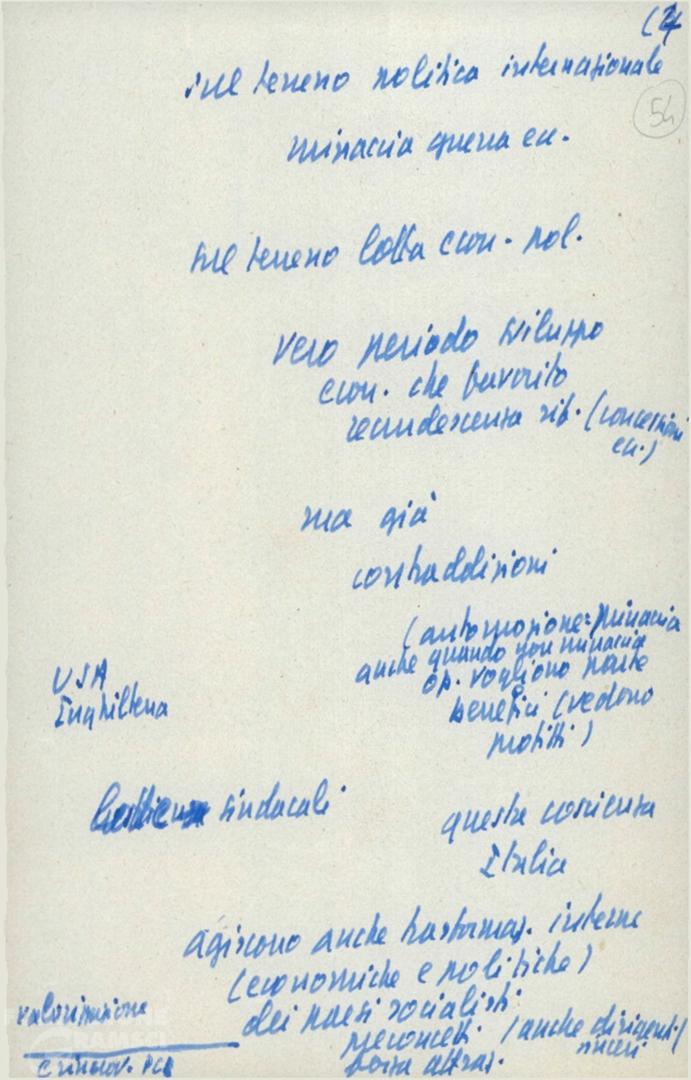 (4
54
sul terreno politica internazionale
minaccia guerra ecc.
sul terreno lotta econ. pol.
vero periodo sviluppo
econ. che favorito
recrudescenza rif. (concessioni
ecc.)
ma già
contraddizioni
(automazione: minaccia
anche quando non minaccia
op. vogliono parte
benefici (vedono
profitti)
USA
Inghilterra
sindacali
questa coscienza
Italia
agiscono anche trasformaz. interne
(economiche e politiche)
dei paesi socialisti
preconcetti (anche dirigenti
sinceri
forza attraz.
valorizzazione
e rinnov. PCI
GRAMSCI